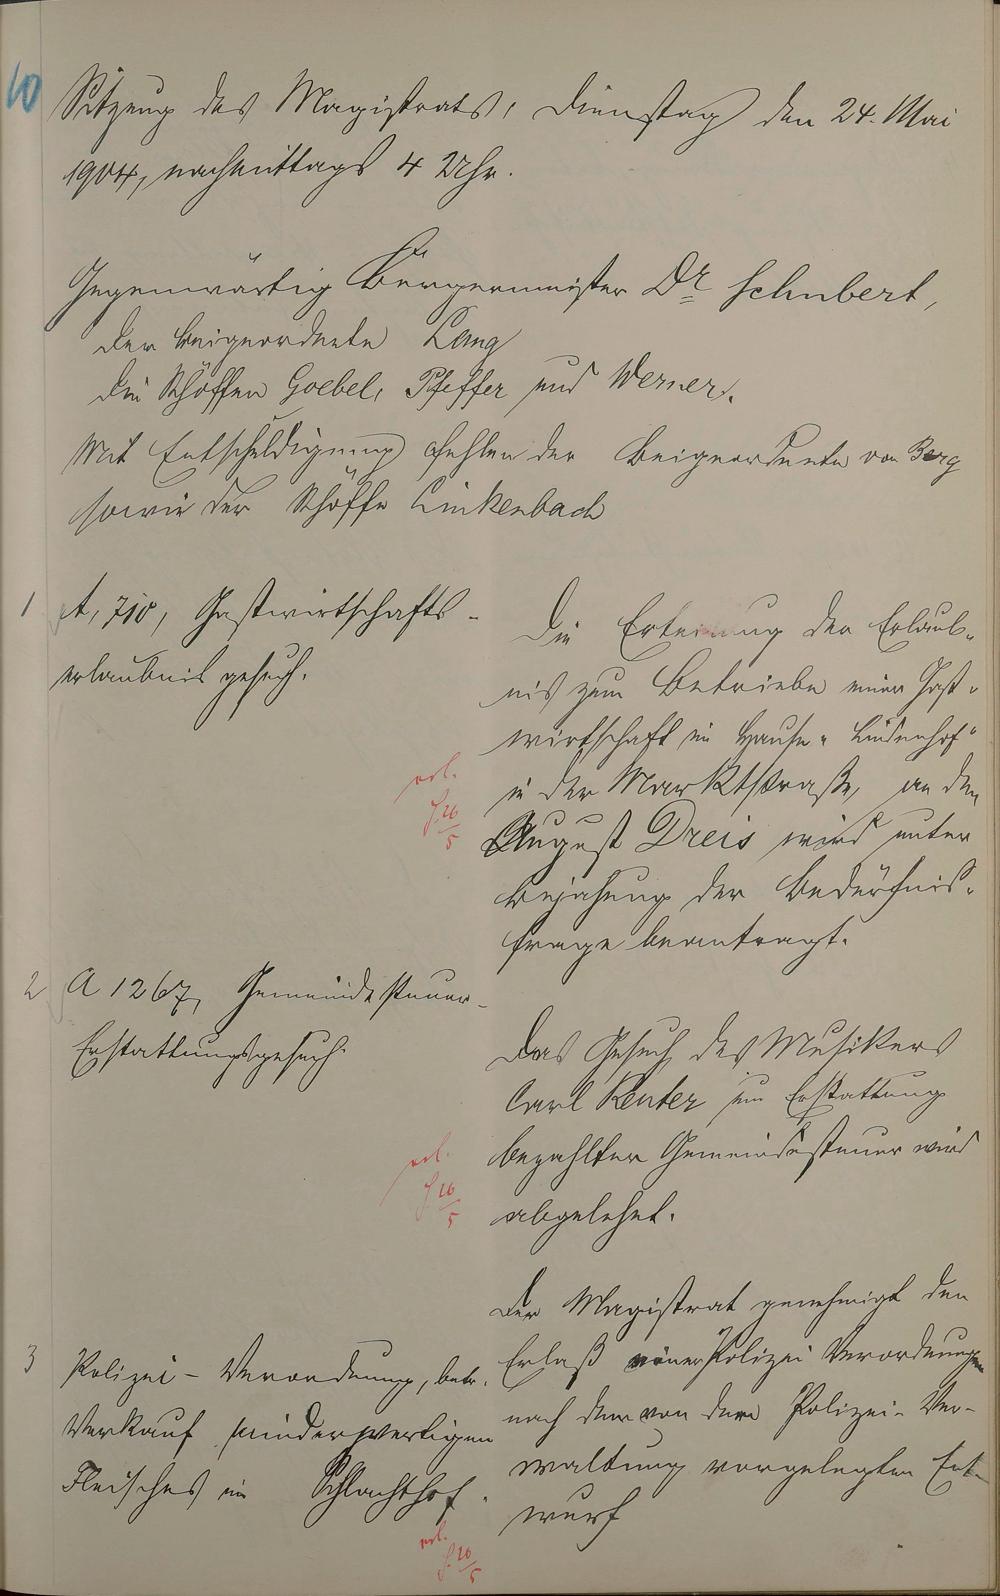 10
Sitzung des Magistrats, Dienstag den 24. Mai
1904, nachmittags 4 Uhr.
Gegenwärtig Bürgermeister Dr Schubert,
der Beigeordnete Lang
die Schöffen Goebel, Pfeffer und Werner.
Mit Entschuldigung fehlen der Beigeordnete von Berg
sowie der Schöffe Linkenbach
1 A, 710, Gastwirtschafts-
erlaubnisgesuch.
Die Erteilung der Erlaub-
nis zum Betriebe einer Gast-
wirtschaft im Hause "Lindenhof"
in der Marktstraße, an den
August Dreis wird unter
Bejahung der Bedürfnis-
frage beantragt.
erl.
26/5
2 A 1267, Gemeindesteuer-
Erstattungsgesuch.
Das Gesuch des Musikers
Carl Reuter um Erstattung
bezahlter Gemeindesteuer wird
abgelehnt.
erl.
26/5
3 Polizei-Verordnung, betr.
Verkauf minderwertigen
Fleisches im Schlachthof.
Der Magistrat genehmigt den
Erlaß einer Polizei Verordnung
nach dem von der Polizei-Ver-
waltung vorgelegten Ent-
wurf
erl.
26/5